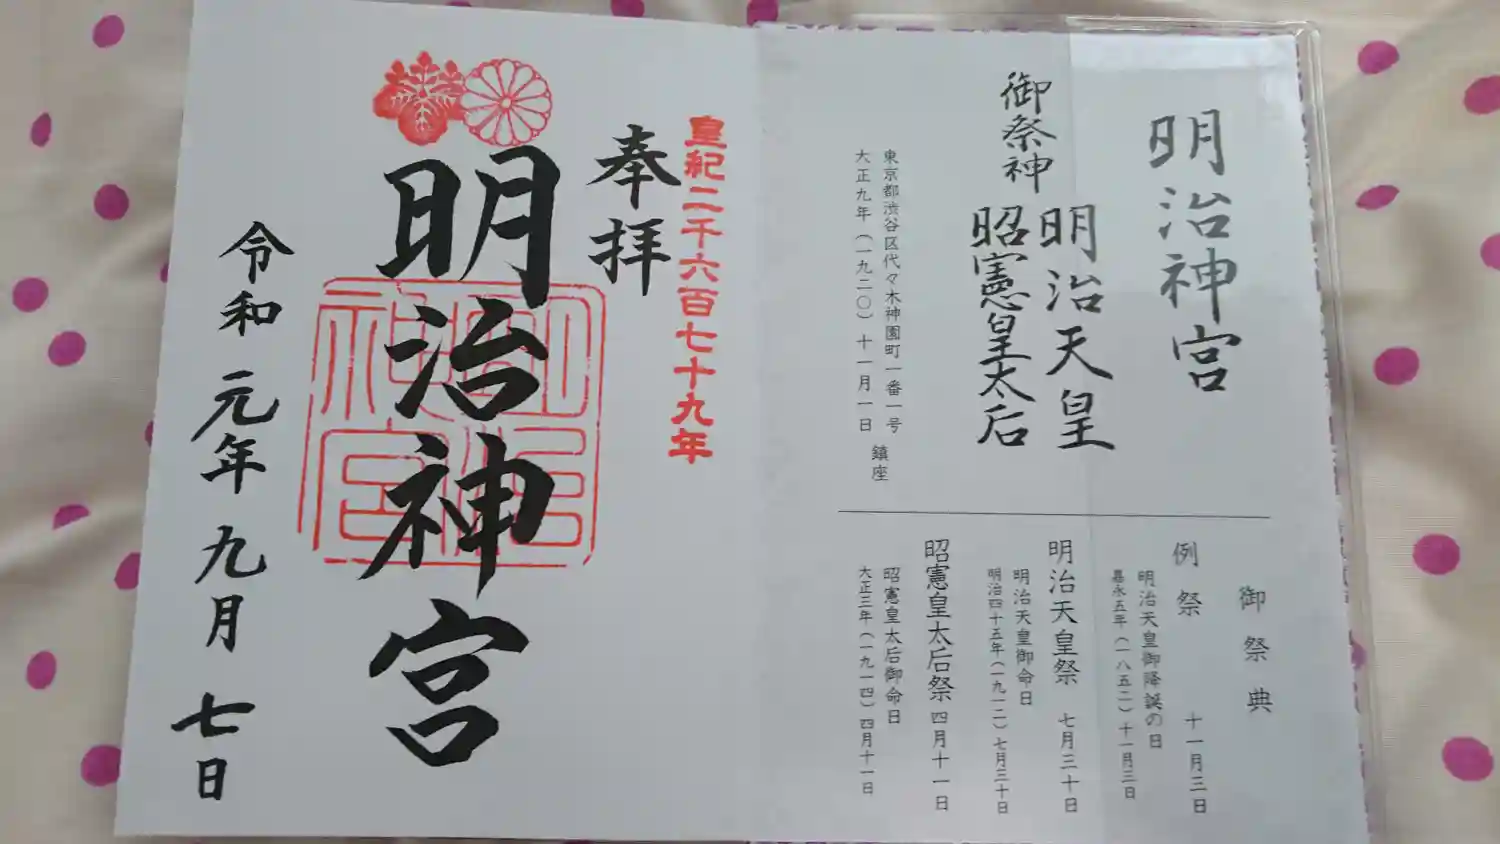 明治神宮
御祭神
明治天皇
昭憲皇太后
東京都渋谷区代々木神園町一番一号
大正九年(一九二〇)十一月一日
鎮座
御祭典
例祭 十一月三日
明治天皇御降誕の日
嘉永五年(一八五二)十一月三日
明治天皇祭 七月三十日
明治天皇御命日
明治四十五年(一九一二)七月三十日
昭憲皇太后祭 四月十一日
昭憲皇太后御命日
大正三年(一九一四)四月十一日
皇紀二千六百七十九年
奉拝
明治神宮
令和元年九月七日